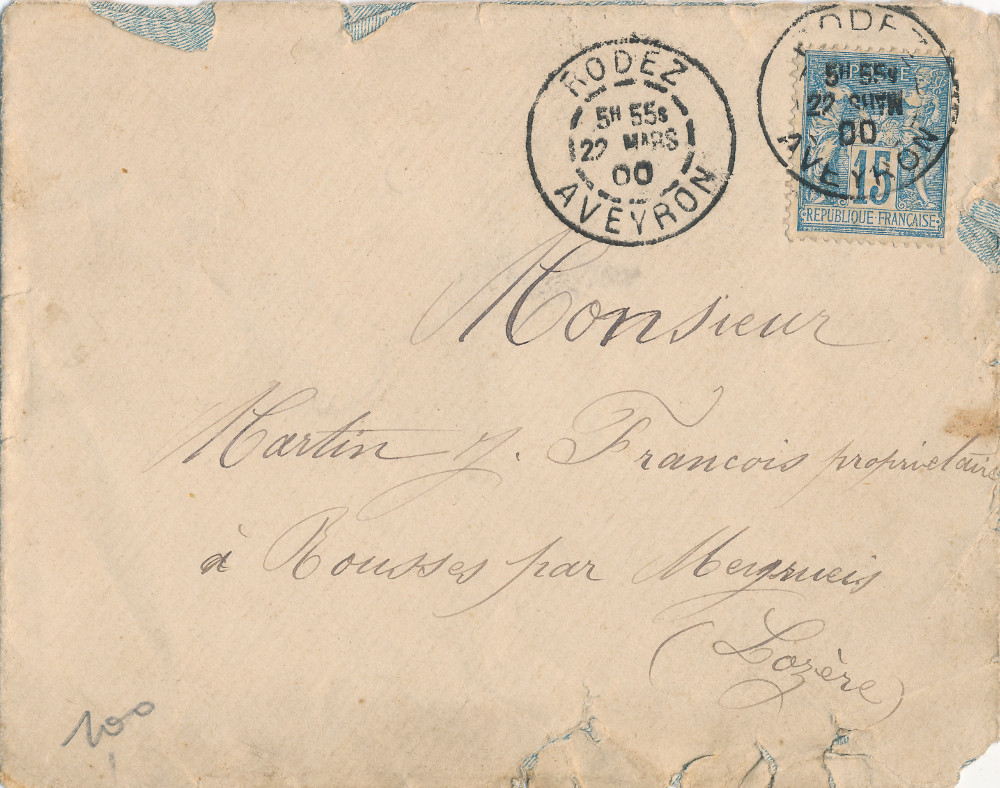 RODEZ
5H 55s
22 MARS
00
AVEYRON
RODEZ
5H 55s
22 MARS
00
AVEYRON
15
REPUBLIQUE FRANÇAISE
Monsieur
Martin J. Francois propriétaire
à Rousses par Meyrueis
(Lozère)
100